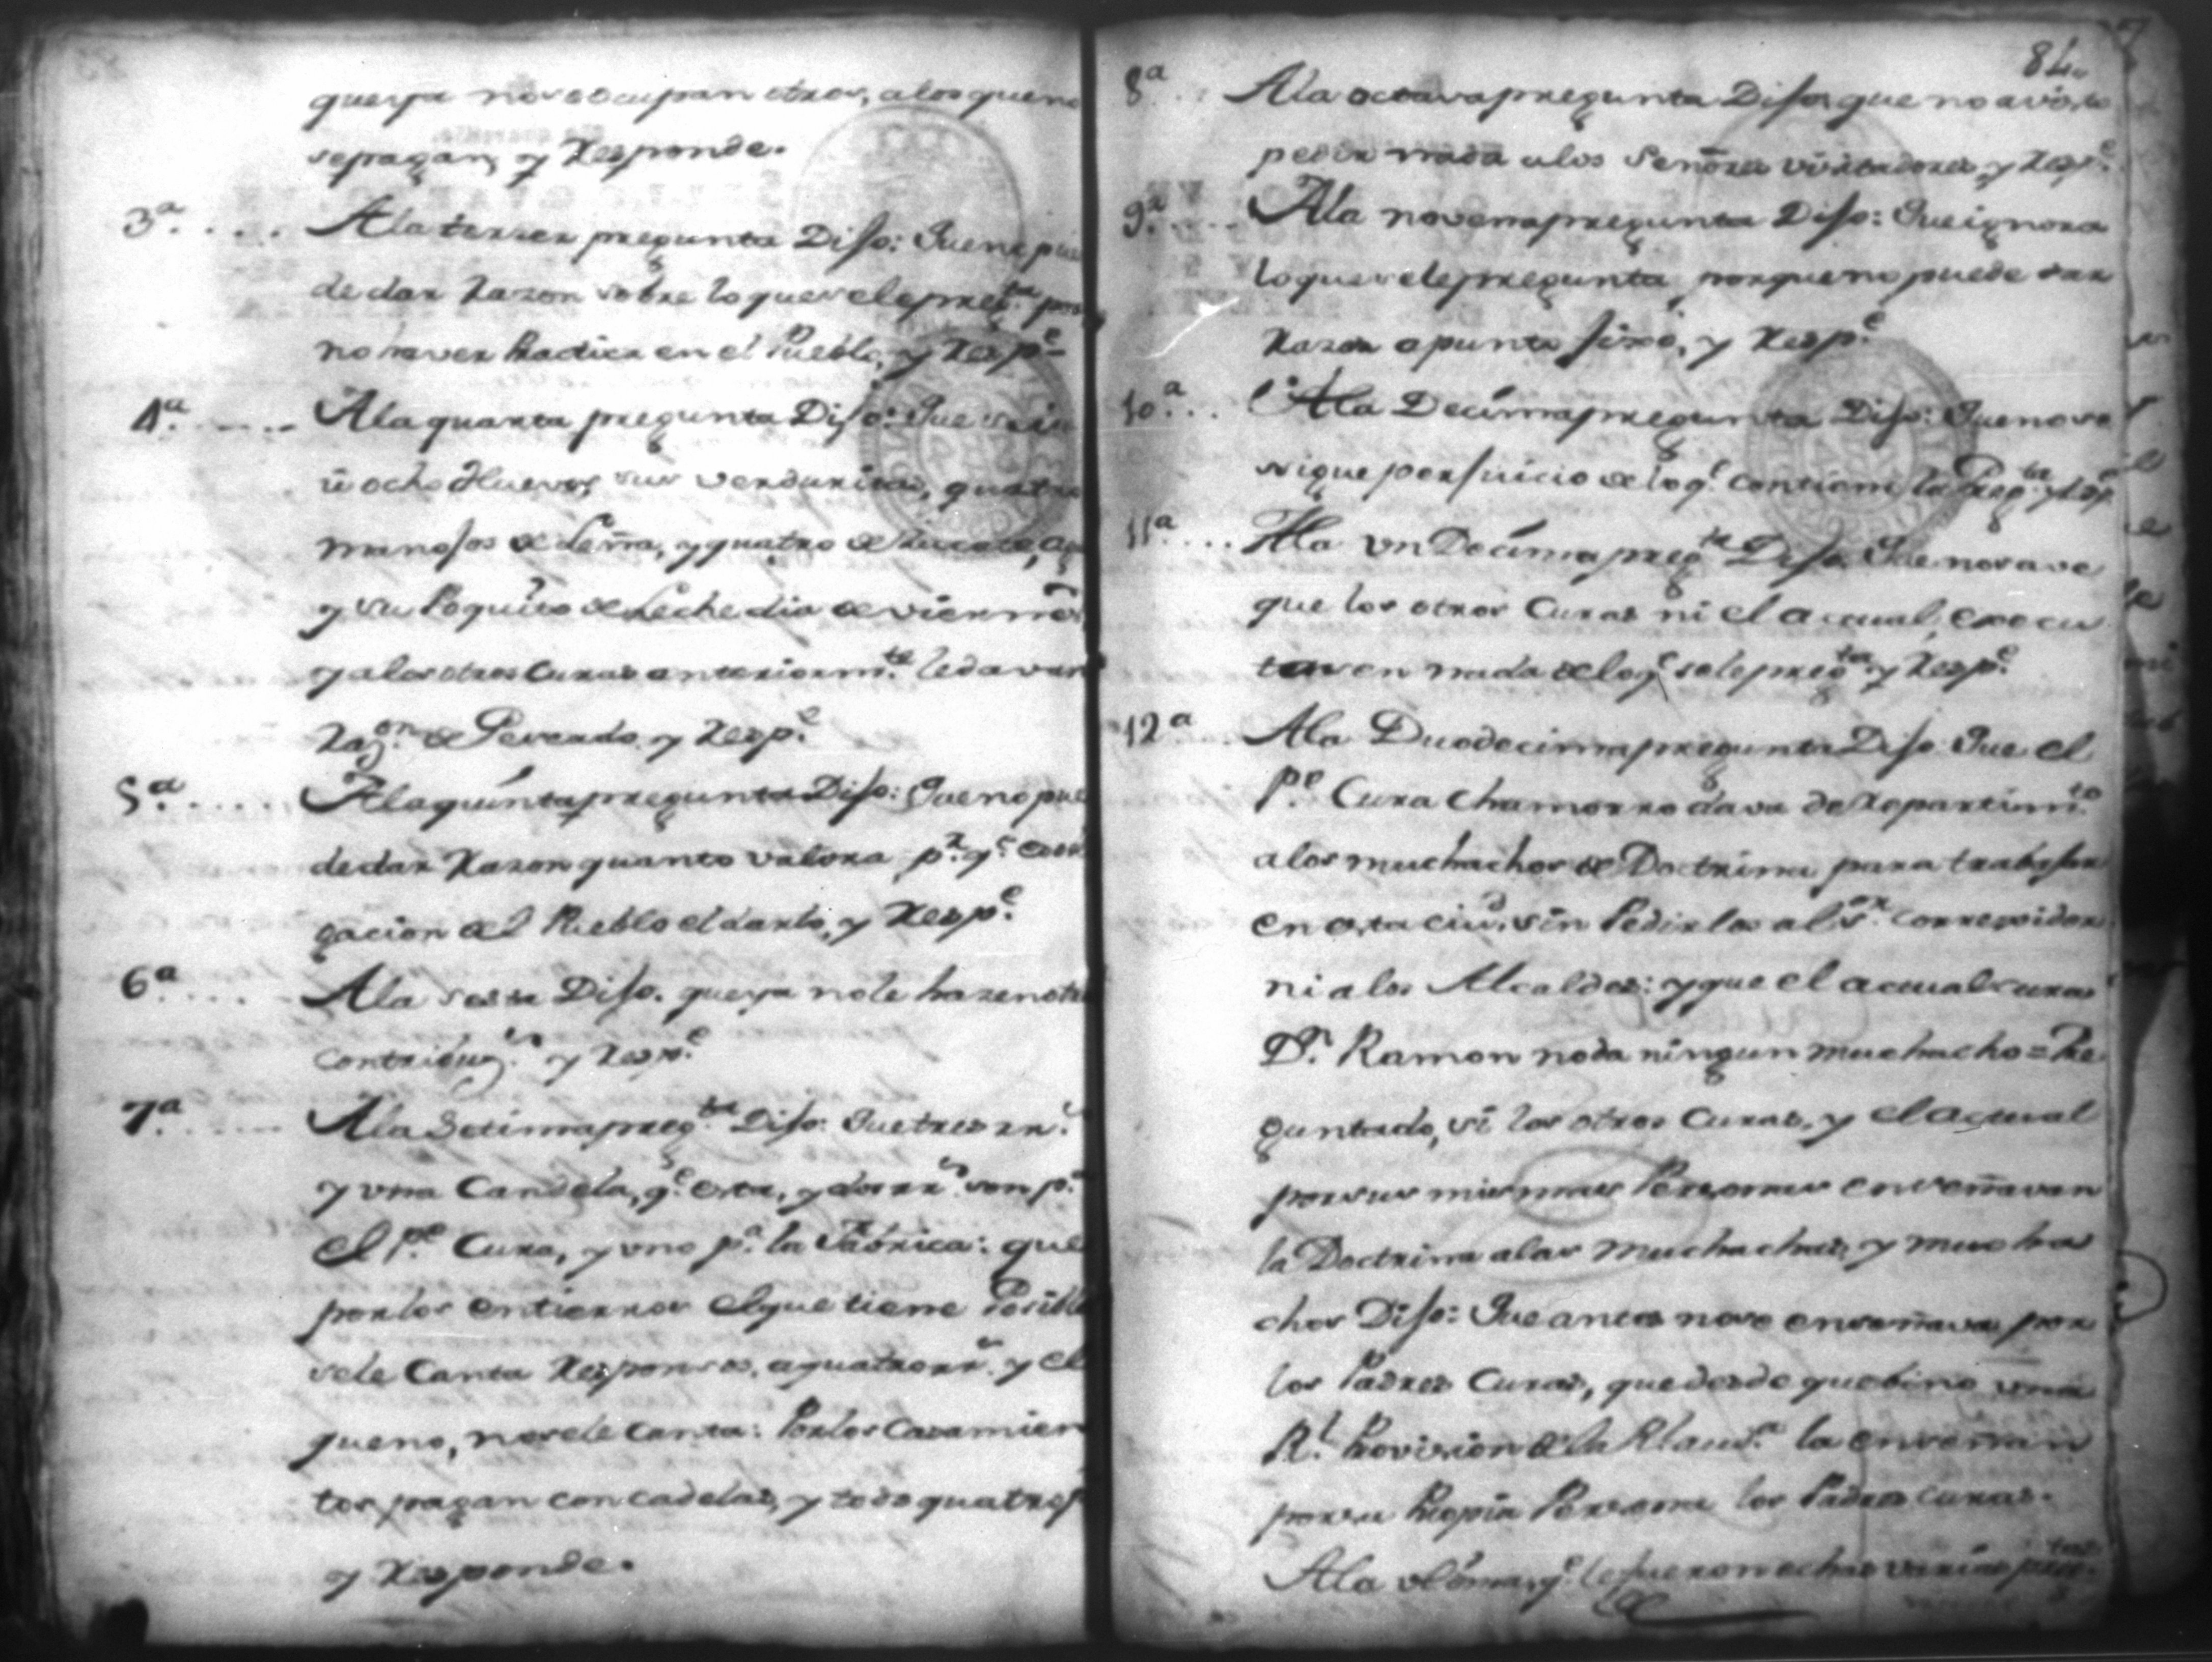 que ya no se ocupan otros, a los que no
se pagan, y Responde.
3ª.... A la terzer pregunta Dijo: Que no pue
de dar Razon sobre lo que se le preg.ta por
no haver Radica en el Pueblo, y Resp.e
4ª.... A la quarta pregunta Dijo: Que
ù ocho Huevos, sus verduritas, quatro
manojos de Leña, y quatro de
y su Poquito de Leche dia de viernes
y a los otros Curas anteriorm.te le davan
Raz.on de Pescado, y Resp.e
5ª.... A la quinta pregunta Dijo: Que no pue
de dar Razon quanto valora p.r q.e
gacion del Pueblo el darlo, y Resp.e
6ª.... A la sesta Dijo. que ya no le hazen otra
contribuz.n y Resp.e
7ª.... A la Setima preg.ta Dijo: Que tres rr.s
y una Candela, q.e esta, y dos rr.s son p.a
el P.e Cura, y uno p.a la Fabrica: que
por los entierros el que tiene Posible
se le Canta Responsos, a quatro rr.s y el
que no, no se le canta: Por los Casamien
tos pagan con cadelas, y todo quatro p
y Responde.
84
8ª... A la octava pregunta Dijo, que no a visto
pedir nada a los Señores visitadores, y Resp.e
9ª.... A la novena pregunta Dijo: Que ignora
lo que se le pregunta, porque no puede dar
Razon a punto fixo, y Resp.e
10ª... A la Decima pregunta Dijo: Que no se
sigue perjuicio de lo q.e contiene la Preg.ta y Resp.e
11ª.... A la vn Decima preg.ta Dijo Que no save
que los otros Curas ni el actual, execu
tasen nada de lo q.e se le preg.ta y Resp.e
12ª A la Duodecima pregunta Dijo Que el
P.e Cura Chamorro dava de Repartim.to
a los muchachos de Doctrina para trabajar
en esta ciu.d sin Pedirlos al S.r Corregidor
ni a los Alcaldes: y que el actual cura
D.n Ramon no da ningun muchacho = Pre
guntado, si los otros Curas, y el actual
por sus mismas Personas enseñavan
la Doctrina a las muchachas, y mucha
chos Dijo: Que antes no se enseñava por
los Padres Curas, que desde que bino una
R.l Provision de la Rl aud.a la enseñan
por su Propia Persona los Padres curas.
A la ultima, q.e le fueron echas varias preg.tas